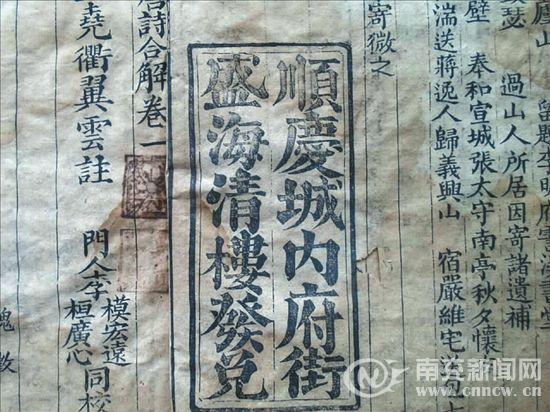 廬山 留題李明府
瑟 過山人所居因寄諸遺補
壁 奉和宣城張太守南亭秋夕懷
湍送蔣逸人歸義興山 宿嚴維宅
寄微之
順慶城內府街
盛海清樓發兌
詩合解卷一
堯衢翼雲註
門人李
模宏遠
桓廣心
同校
南充新闻网
www.cnncw.cn